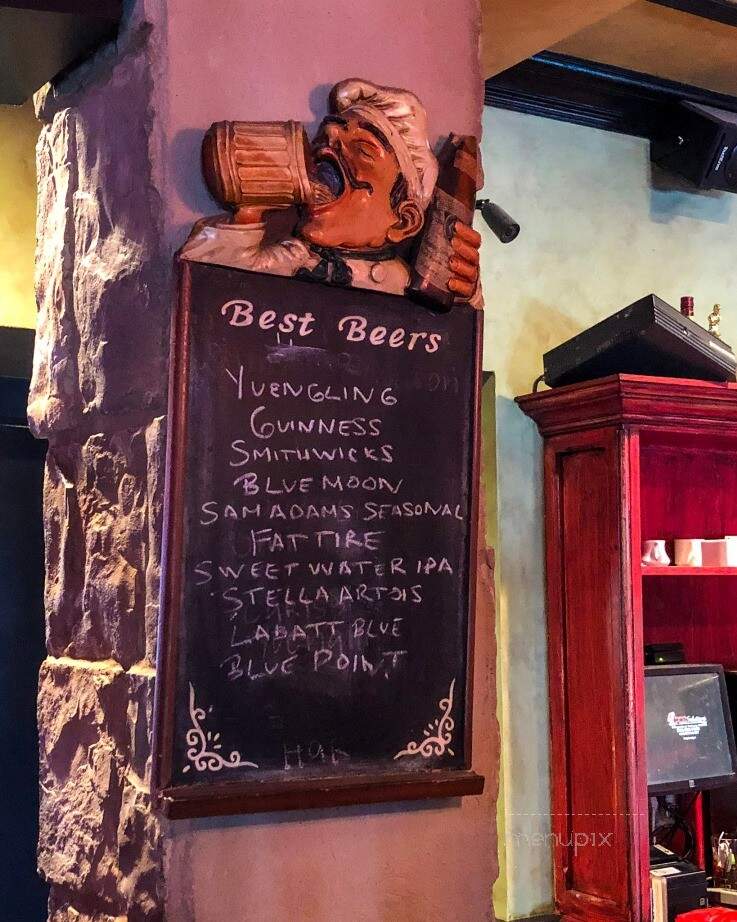 Best Beers
YUENGLING
GUINNESS
SMITHWICKS
BLUE MOON
SAM ADAMS SEASONAL
FAT TIRE
SWEET WATER IPA
STELLA ARTOIS
LABATT BLUE
BLUE POINT
menupix